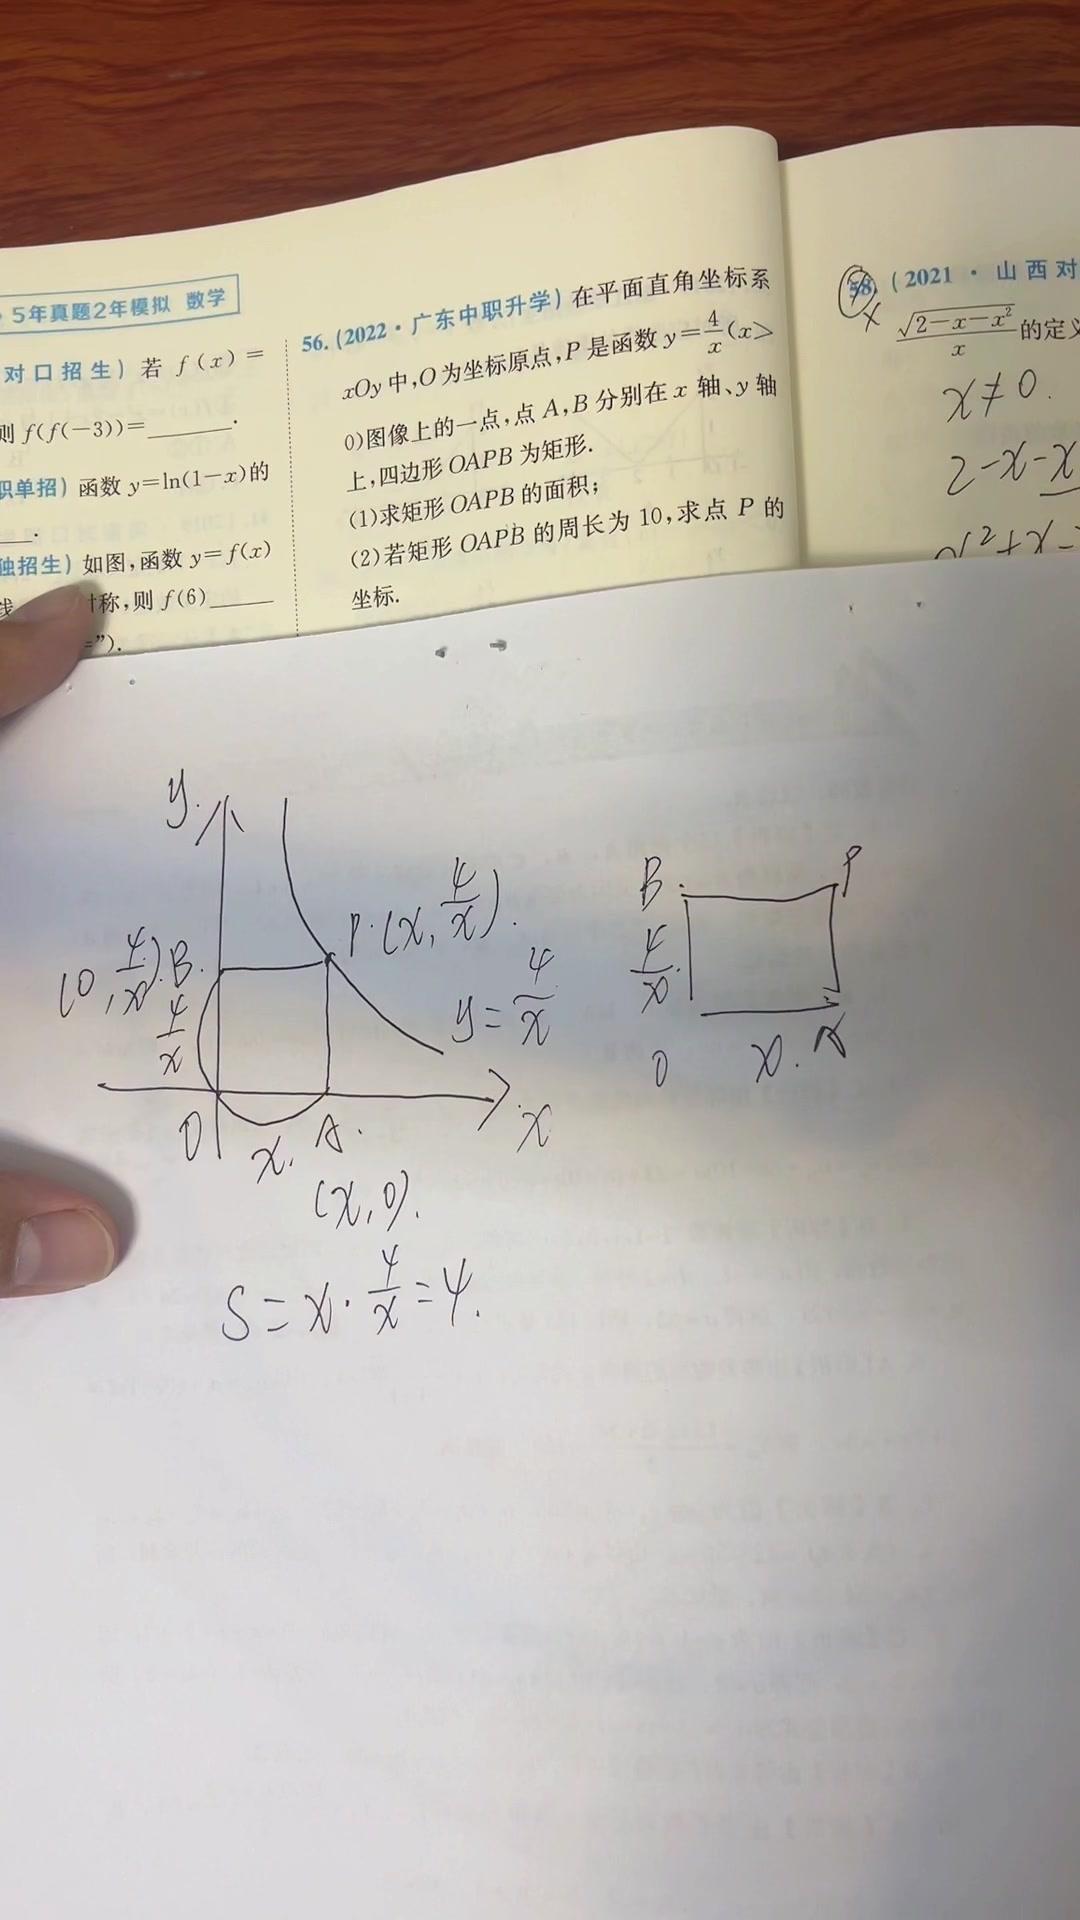 5年真题2年模拟 数学
对口招生) 若 f(x)=
则 f(f(-3))=______.
职单招) 函数 y=ln(1-x)的
独招生) 如图,函数 y=f(x)
线 对称,则 f(6)____
=”).
56. (2022·广东中职升学) 在平面直角坐标系
xOy 中,O 为坐标原点,P 是函数 y=4/x(x>
0)图像上的一点,点 A,B 分别在 x 轴、y 轴
上,四边形 OAPB 为矩形.
(1)求矩形 OAPB 的面积;
(2)若矩形 OAPB 的周长为 10,求点 P 的
坐标.
58. (2021·山西对
√(2-x-x²)/x 的定义
x≠0.
2-x-x
y.
P.(x, 4/x).
(0, 4/x).B.
4/x
y=4/x
O
x. A.
x
(x,0).
S=x·4/x=4.
B. P
4/x.
O x. A